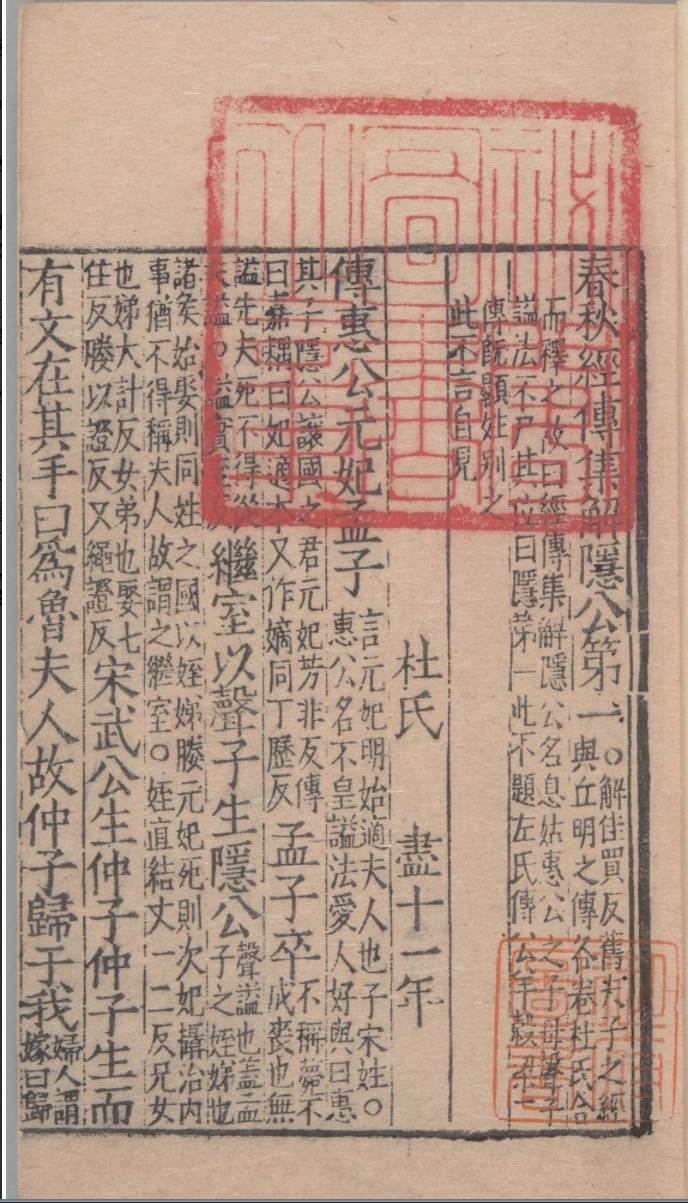 春秋經傳集解隱公第一
○解佳買反舊夫子之經
與丘明之傳各卷杜氏合
而釋之故曰經傳集解隱公名息姑惠公之子母聲子
謚法不尸其位曰隱第一此不題左氏傳公羊穀梁二
傳既顯姓別之
此不言自見
杜氏 盡十一年
傳惠公元妃孟子
言元妃明始適夫人也子宋姓○
惠公名不皇謚法愛人好與曰惠
其子隱公讓國之君元妃芳非反傳
曰嘉耦曰妃適本又作嫡同丁歷反
孟子卒
不稱薨不
成喪也無
謚先夫死不得從
夫謚○謚實至反
繼室以聲子生隱公
聲謚也蓋孟
子之姪娣也
諸矦始娶則同姓之國以姪娣媵元妃死則次妃攝治内
事猶不得稱夫人故謂之繼室○姪直結丈一二反兄女
也娣大計反女弟也娶七
住反媵以證反又繩證反
宋武公生仲子仲子生而
有文在其手曰爲魯夫人故仲子歸于我
婦人謂
嫁曰歸